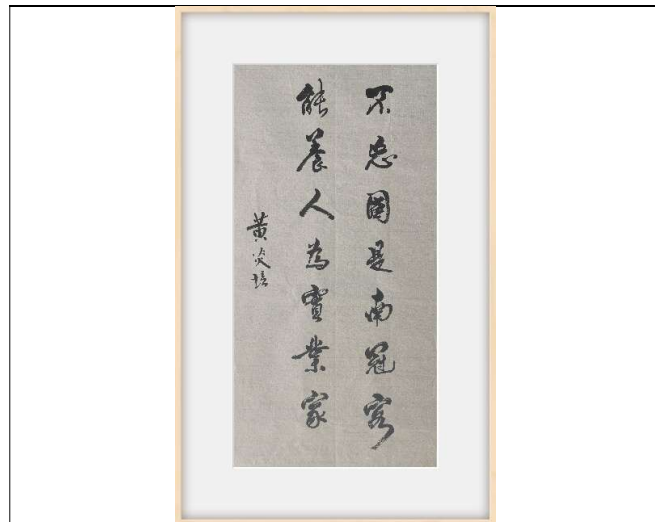 不忘國是南冠客
能養人為實業家
黃炎培